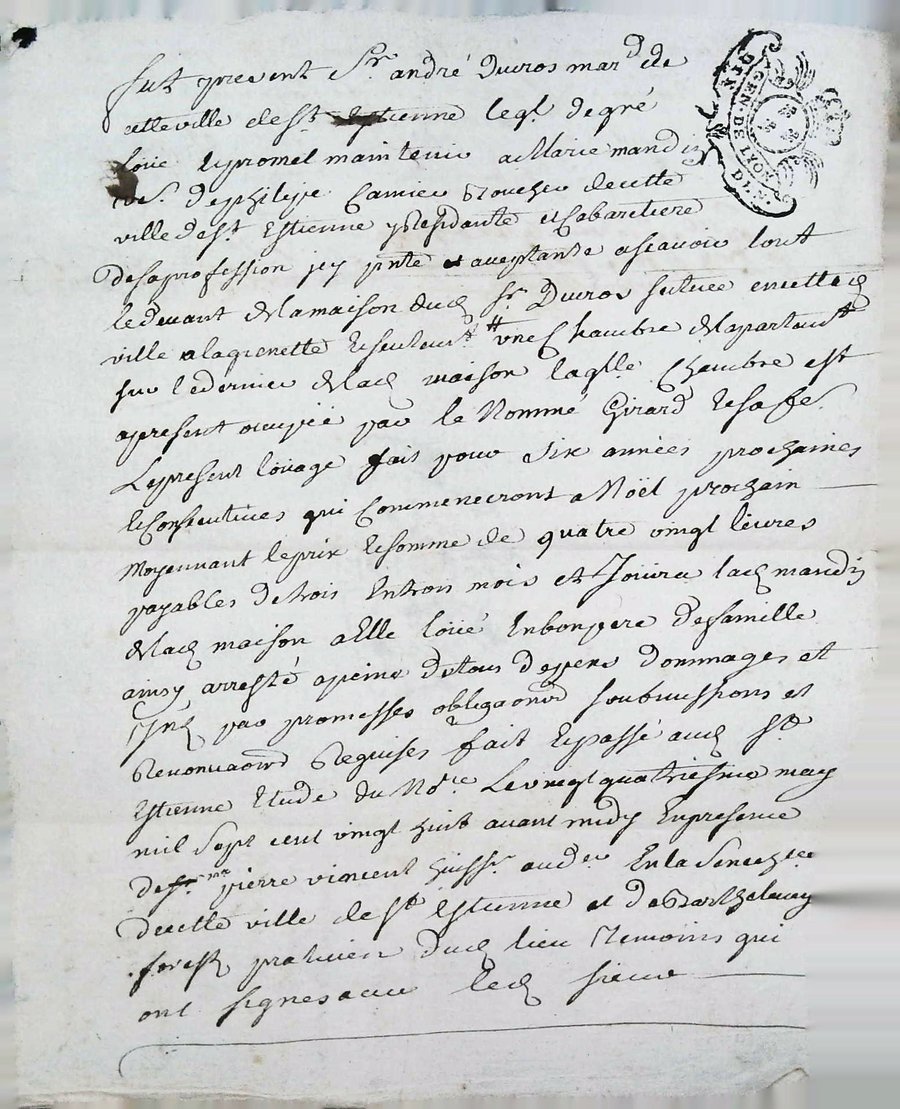 fut present Sr. andré Ducros mard de
cette ville de st. Estienne leql. de gré
loüe et promet maintenir a Marie mandin
ve. de philippe Camier Boucher de cette
ville de st. Estienne y Residante et Cabaretiere
de sa profession icy pnte et aceptante a scavoir tout
le devant de la maison dud sr. Ducros scituee en cette d
ville a la grenette Et seulemt. une Chambre de lapartemt
sur le dernier de lad maison laqlle. Chambre est
a present ocupée par le Nommé Girard Et sa fe.
Le present loüage fait pour six années prochaines
et Consecutives qui Commenceront a Noël prochain
Moyennant le prix Et somme de quatre vingt livres
payables de trois En trois mois et Joüira lad mandin
de lad maison a Elle loüé En bon pere de famille
ainsy arresté a peine de tous depens dommages et
par promesses obligaons soubmissions et
Renonciaons Requises fait Et passé aud st
Estienne Etude du Nore. Le vingt quatriesme may
mil sept cent vingt huit avant midy En presence
de pierre vincent huissr. aud En la Senechee
de cette ville de st Estienne et de Barthelemy
forest praticien dud lieu Temoins qui
ont signes avec led sieur
GEN. DE LYON